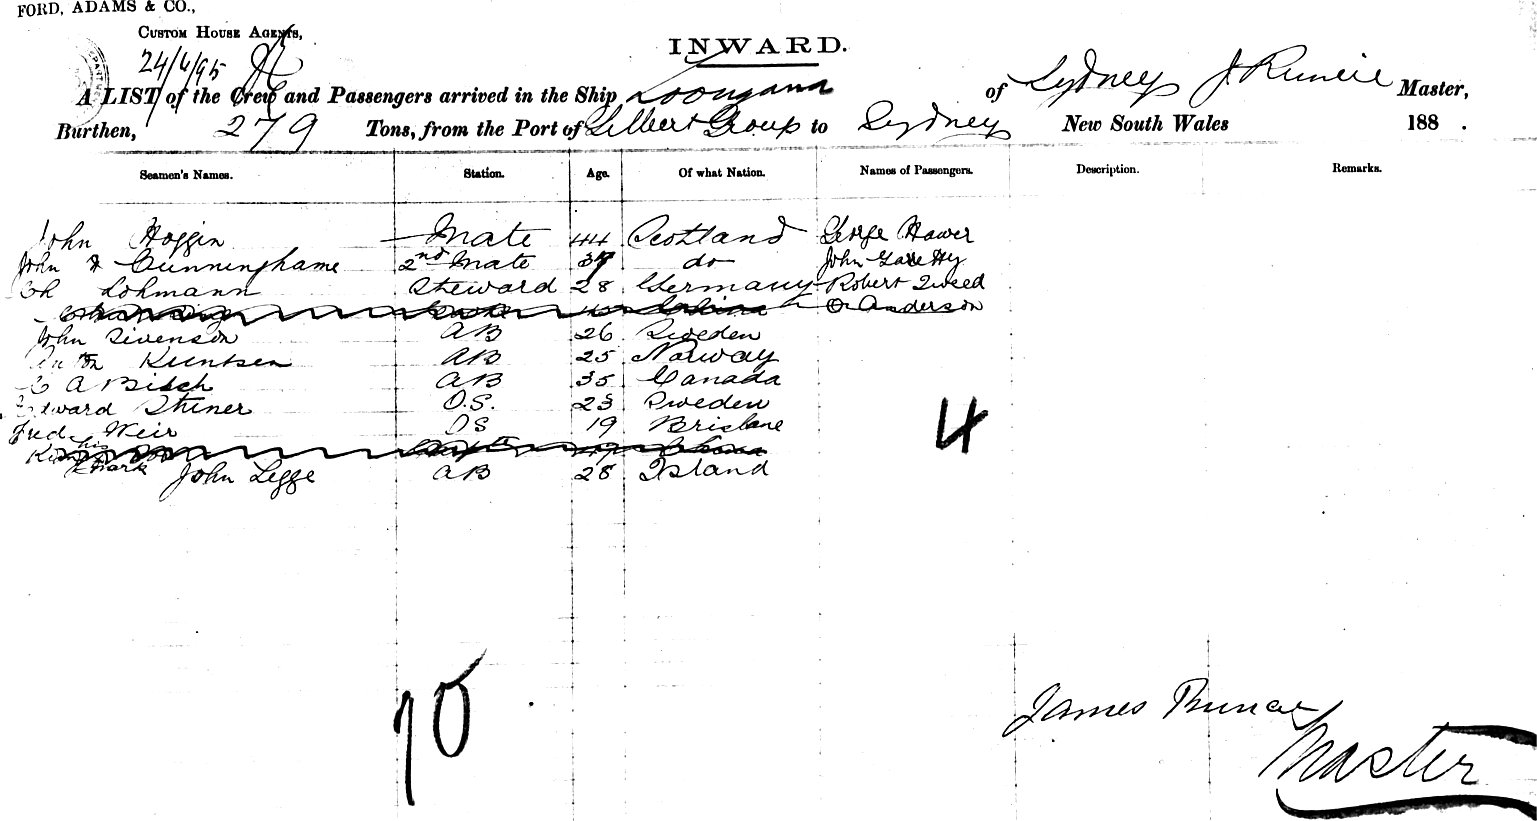 FORD, ADAMS & CO.,
CUSTOM HOUSE AGENTS,
24/6/95
INWARD.
A LIST of the Crew and Passengers arrived in the Ship Loongana of Sydney J. Runcie Master,
Burthen, 279 Tons, from the Port of Gilbert Group to Sydney New South Wales 188 .
Seamen's Names. Station. Age. Of what Nation. Names of Passengers. Description. Remarks.
John Hoggin Mate 44 Scotland George Hawer
John Cunninghame 2nd Mate 37 do John
Ch Lohmann Steward 28 Germany Robert Tweed
O Anderson
John Sivenson AB 26 Sweden
Anton Kuntsen AB 25 Norway
C A Bisch AB 35 Canada
Edward Stiner O.S. 23 Sweden
Fred Weir OS 19 Brisbane
his
mark John Legge AB 28 Island
4
10
James Runcie
Master